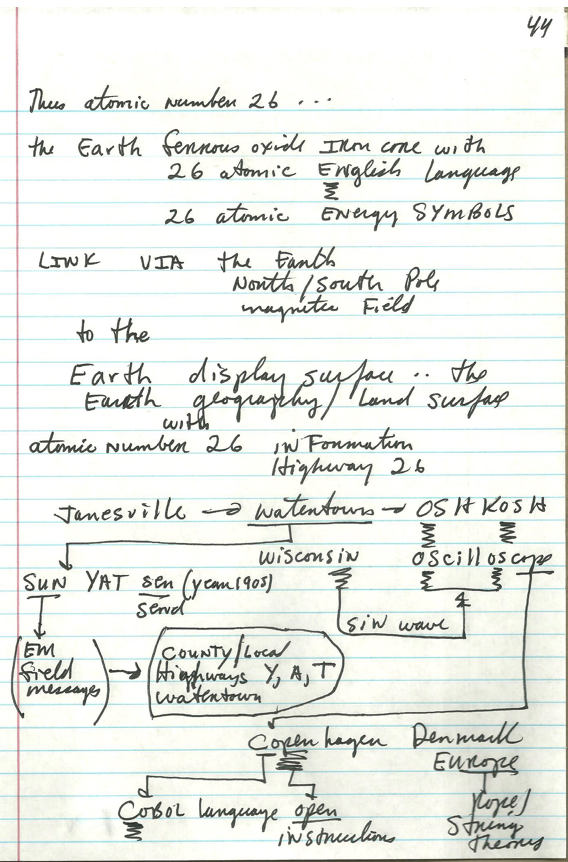 44
Thus atomic number 26 ...
the Earth ferrous oxide Iron core with
26 atomic English Language
26 atomic Energy SYMBOLS
LINK VIA the Earth
North/South Pole
magnetic Field
to the
Earth display surface .. the
Earth geography/Land surface
with
atomic number 26 inFormation
Highway 26
Janesville → watertown → OSHKOSH
wisconsin oscilloscope
SUN YAT sen (year 1905)
send
sin wave
(EM field messages) → COUNTY/Local
Highways Y, A, T
watertown
Copenhagen Denmark
Europe
COBOL language open
instructions
rope/
String
Theory